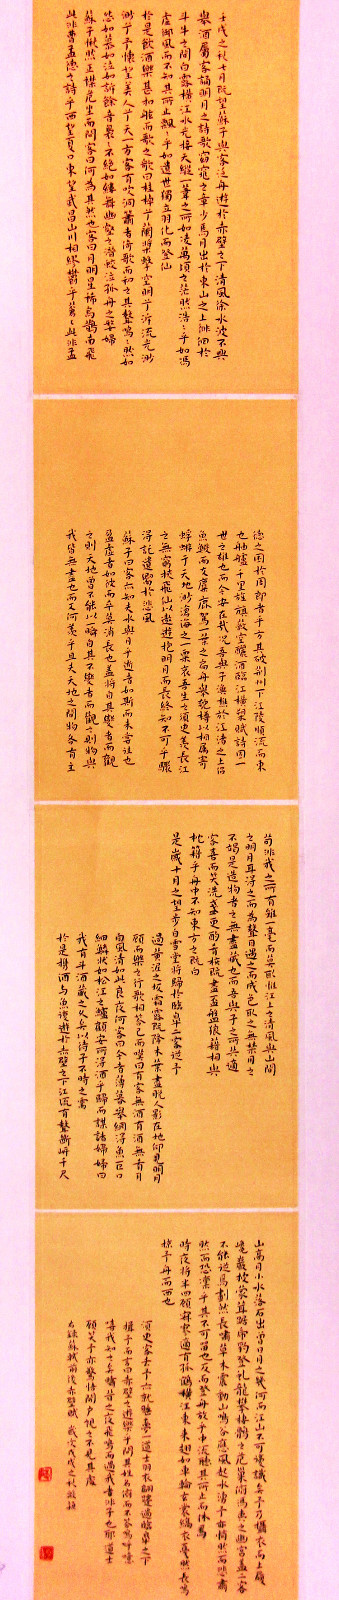 壬戌之秋七月既望蘇子與客泛舟遊於赤壁之下清風徐水波不興
舉酒屬客誦明月之詩歌窈窕之章少焉月出於東山之上徘徊於
斗牛之間白露橫江水光接天縱一葦之所如凌萬頃之茫然浩浩乎如馮
虛御風而不知其所止飄飄乎如遺世獨立羽化而登仙
於是飲酒樂甚扣舷而歌之歌曰桂棹兮蘭槳擊空明兮泝流光渺
渺兮予懷望美人兮天一方客有吹洞簫者倚歌而和之其聲嗚嗚然如
怨如慕如泣如訴餘音裊裊不絕如縷舞幽壑之潛蛟泣孤舟之嫠婦
蘇子愀然正襟危坐而問客曰何為其然也客曰月明星稀烏鵲南飛
此非曹孟德之詩乎西望夏口東望武昌山川相繆鬱乎蒼蒼此非孟
德之困於周郎者乎方其破荊州下江陵順流而東
也舳艫千里旌旗蔽空釃酒臨江橫槊賦詩固一
世之雄也而今安在哉況吾與子漁樵於江渚之上侶
魚鰕而友麋鹿駕一葉之扁舟舉匏樽以相屬寄
蜉蝣于天地渺滄海之一粟哀吾生之須臾羨長江
之無窮挾飛仙以遨遊抱明月而長終知不可乎驟
得託遺響於悲風
蘇子曰客亦知夫水與月乎逝者如斯而未嘗往也
盈虛者如彼而卒莫消長也蓋將自其變者而觀
之則天地曾不能以一瞬自其不變者而觀之則物與
我皆無盡也而又何羨乎且夫天地之間物各有主
苟非我之所有雖一毫而莫取惟江上之清風與山間
之明月耳得之而為聲目遇之而成色取之無禁用之
不竭是造物者之無盡藏也而吾與子之所共適
客喜而笑洗盞更酌肴核既盡杯盤狼藉相與
枕藉乎舟中不知東方之既白
是歲十月之望步自雪堂將歸於臨皋二客從予
過黃泥之坂霜露既降木葉盡脫人影在地仰見明月
顧而樂之行歌相答已而嘆曰有客無酒有酒無肴月
白風清如此良夜何客曰今者薄暮舉網得魚巨口
細鱗狀如松江之鱸顧安所得酒乎歸而謀諸婦婦曰
我有斗酒藏之久矣以待子不時之需
於是攜酒與魚復遊於赤壁之下江流有聲斷岸千尺
山高月小水落石出曾日月之幾何而江山不可復識矣予乃攝衣而上履
巉巖披蒙茸踞虎豹登虬龍攀棲鶻之危巢俯馮夷之幽宮蓋二客
不能從焉劃然長嘯草木震動山鳴谷應風起水涌予亦悄然而悲肅
然而恐凜乎其不可留也反而登舟放乎中流聽其所止而休焉
時夜將半四顧寂寥適有孤鶴橫江東來翅如車輪玄裳縞衣戛然長鳴
掠予舟而西也
須臾客去予亦就睡夢一道士羽衣翩躚過臨皋之下
揖予而言曰赤壁之遊樂乎問其姓名俯而不答嗚呼噫
嘻我知之矣疇昔之夜飛鳴而過我者非子也耶道士
顧笑予亦驚悟開戶視之不見其處
右錄蘇軾前後赤壁賦